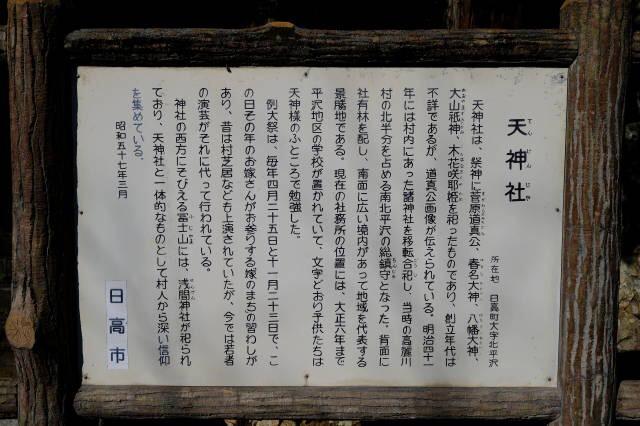 天神社
所在地 日高町大字北平沢
天神社は、祭神に菅原道真公、春名大神、八幡大神、
大山祇神、木花咲耶姫を祀ったものであり、創立年代は
不詳であるが、道真公画像が伝えられている。明治四十一
年には村内にあった諸神社を移転合祀し、当時の高麗川
村の北半分を占める南北平沢の総鎮守となった。背面に
社有林を配し、南面に広い境内があって地域を代表する
景勝地である。現在の社務所の位置には、大正六年まで
平沢地区の学校が置かれていて、文字どおり子供たちは
天神様のふところで勉強した。
例大祭は、毎年四月二十五日と十一月二十三日で、こ
の日その年のお嫁さんがお参りする嫁のまちの習わしが
あり、昔は村芝居なども上演されていたが、今では若者
の演芸がそれに代って行われている。
神社の西方にそびえる冨士山には、浅間神社が祀られ
ており、天神社と一体的なものとして村人から深い信仰
を集めている。
昭和五十七年三月
日高市